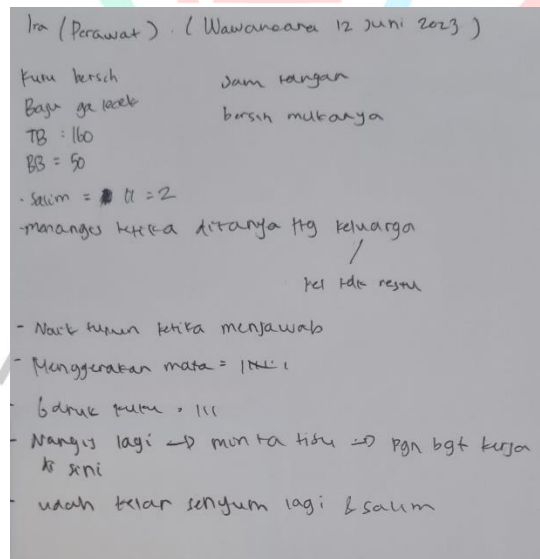 Ira (Perawat). (Wawancara 12 Juni 2023)
Kuku bersih
Jam tangan
Baju ga lecek
bersih mukanya
TB : 160
BB = 50
- Salim = II = 2
- menangis ketika ditanya ttg keluarga
kel tdk restu
- Naik turun ketika menjawab
- Menggerakan mata =
- Garuk kuku = III
- Nangis lagi → minta tisu → pgn bgt kerja
di sini
- udah kelar senyum lagi & salim